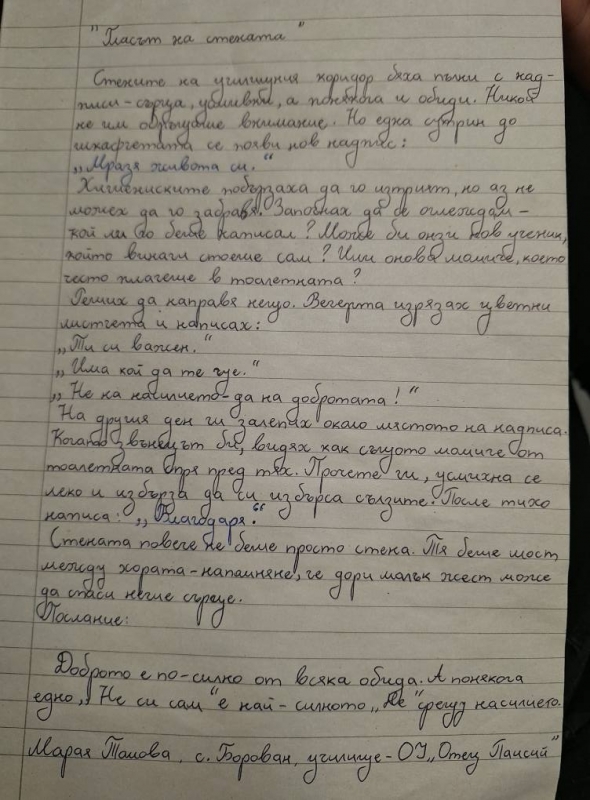 "Гласът на стената"
Стените на училищния коридор бяха пълни с над-
писи-сърца, усмивки, а понякога и обиди. Никой
не им обръщаше внимание. Но една сутрин до
шкафчетата се появи нов надпис:
„Мразя живота си."
Хигиенистките побързаха да го изтрият, но аз не
можех да го забравя. Започнах да се оглеждам -
кой ли го беше написал? Може би онзи нов ученик,
който винаги стоеше сам? Или онова момиче, което
често плачеше в тоалетната?
Реших да направя нещо. Вечерта изрязах цветни
листчета и написах:
„Ти си важен."
„Има кой да те чуе."
„Не на насилието-да на добротата!"
На другия ден ги залепих около мястото на надписа.
Когато звънецът би, видях как същото момиче от
тоалетната спря пред тях. Прочете ги, усмихна се
леко и избърза да си избърса сълзите. После тихо
написа: „Благодаря."
Стената повече не беше просто стена. Тя беше мост
между хората-напомняне, че дори малък жест може
да спаси нечие сърце.
Послание:
Доброто е по-силно от всяка обида. А понякога
едно „Не си сам" е най-силното „Не" срещу насилието.
Марая Томова, с. Борован, училище-ОУ „Отец Паисий"